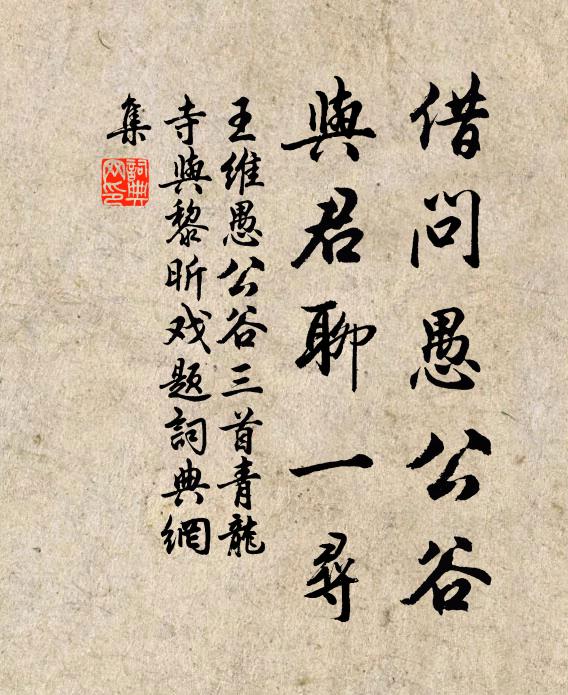 借問愚公谷
與君聊一尋
王維愚公谷三首青龍
寺與黎昕戏題詞典網
集
詞典網印